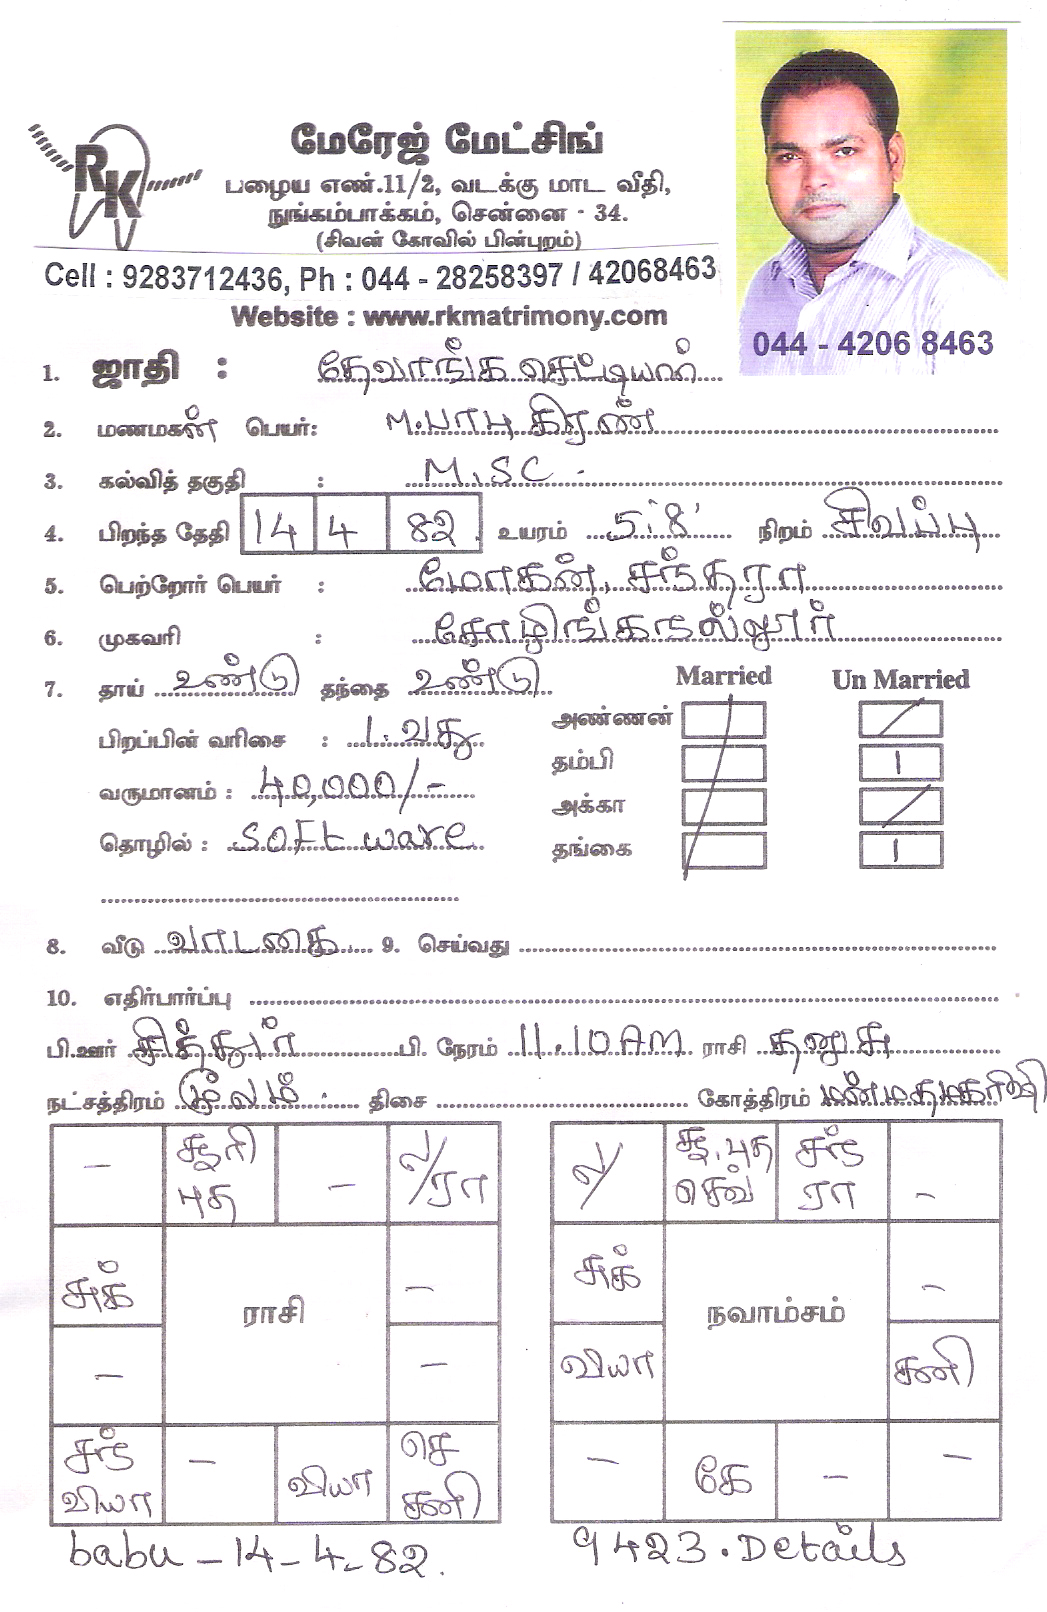 RK
மேரேஜ் மேட்சிங்
பழைய எண்.11/2, வடக்கு மாட வீதி,
நுங்கம்பாக்கம், சென்னை - 34.
(சிவன் கோவில் பின்புறம்)
Cell : 9283712436, Ph : 044 - 28258397 / 42068463
Website : www.rkmatrimony.com
044 - 4206 8463
1. ஜாதி : தேவாங்க செட்டியார்
2. மணமகன் பெயர்: M.பாபு கிரண்
3. கல்வித் தகுதி : M.SC.
4. பிறந்த தேதி 14 4 82 உயரம் 5'8' நிறம் சிவப்பு
5. பெற்றோர் பெயர் : மோகன், சந்தரா
6. முகவரி : சோழிங்கநல்லூர்
7. தாய் உண்டு தந்தை உண்டு Married Un Married
அண்ணன்
பிறப்பின் வரிசை : 1.வது
தம்பி 1
வருமானம் : 40,000/-
அக்கா
தொழில் : SOFt ware
தங்கை 1
8. வீடு வாடகை 9. செய்வது
10. எதிர்பார்ப்பு
பி.ஊர் சித்தூர் பி. நேரம் 11.10 AM ராசி தனுசு
நட்சத்திரம் மூலம் திசை கோத்திரம் மன்மதமகரிஷி
– சூரி புத – ல/ரா
சுக் –
ராசி
– –
சந் வியா – வியா செ சனி
ல/ சூ.புத செவ் சந் ரா –
சுக் –
நவாம்சம்
வியா சனி
– கே – –
babu – 14 – 4 – 82.
9423. Details